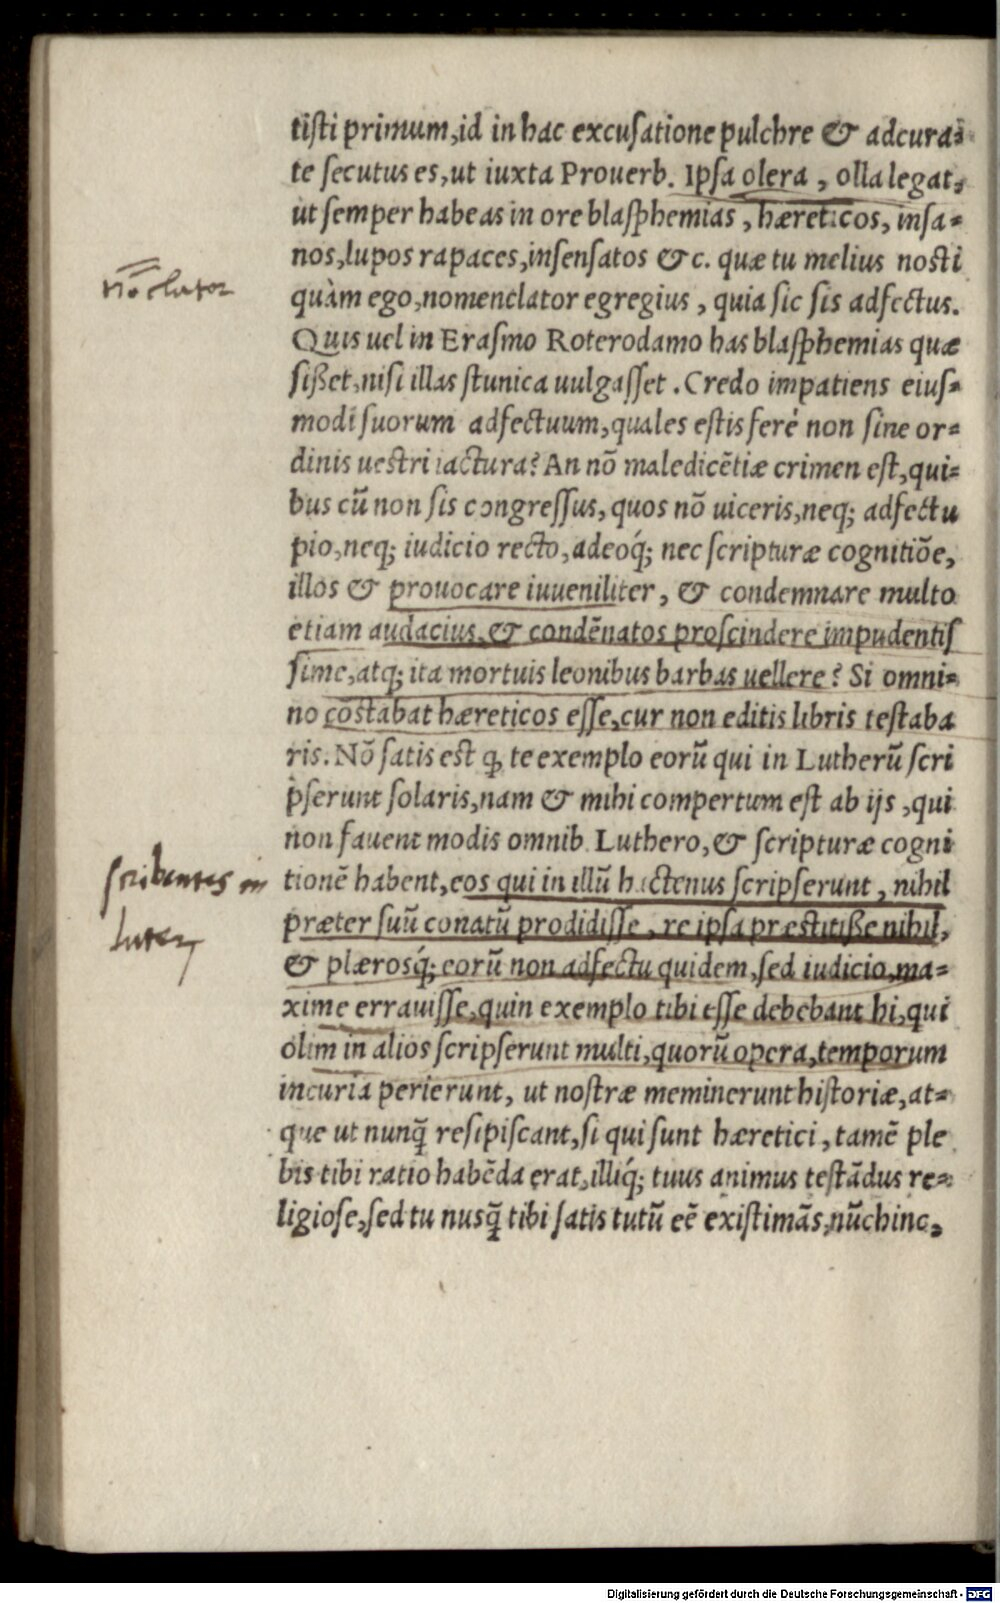 tisti primum,id in hac excusatione pulchre & adcura=
te secutus es,ut iuxta Prouerb. Ipsa olera , olla legat,
ut semper habeas in ore blasphemias , hæreticos, insa=
nos,lupos rapaces,insensatos &c. quæ tu melius nosti
nōclator
quàm ego,nomenclator egregius , quia sic sis adfectus.
Quis uel in Erasmo Roterodamo has blasphemias quæ
sißet,nisi illas stunica uulgasset . Credo impatiens eius=
modi suorum adfectuum,quales estis ferè non sine or=
dinis uestri iactura? An nō maledicētiæ crimen est,qui=
bus cū non sis congressus, quos nō uiceris,neq; adfectu
pio,neq; iudicio recto,adeoq́; nec scripturæ cognitiōe,
illos & prouocare iuueniliter , & condemnare multo
etiam audacius,& condēnatos proscindere impudentis
sime,atq; ita mortuis leonibus barbas uellere? Si omni=
no cōstabat hæreticos esse,cur non editis libris testaba
ris. Nō satis est q̃ te exemplo eorū qui in Lutherū scri
pserunt solaris,nam & mihi compertum est ab ijs ,qui
non fauent modis omnib. Luthero,& scripturæ cogni
scribentes in
tionē habent,eos qui in illū hactenus scripserunt , nihil
præter suū conatū prodidisse , re ipsa præstitiße nihil,
Luter
& plærosq́; eorū non adfectu quidem,sed iudicio,ma=
xime errauisse,quin exemplo tibi esse debebant hi,qui
olim in alios scripserunt multi,quorū opera,temporum
incuria perierunt, ut nostræ meminerunt historiæ,at=
que ut nunq̃ resipiscant,si qui sunt hæretici , tamē ple
bis tibi ratio habēda erat,illiq́; tuus animus testādus re=
ligiose,sed tu nusq̃ tibi satis tutū eē existimās,nūc hinc,
Digitalisierung gefördert durch die Deutsche Forschungsgemeinschaft - DFG